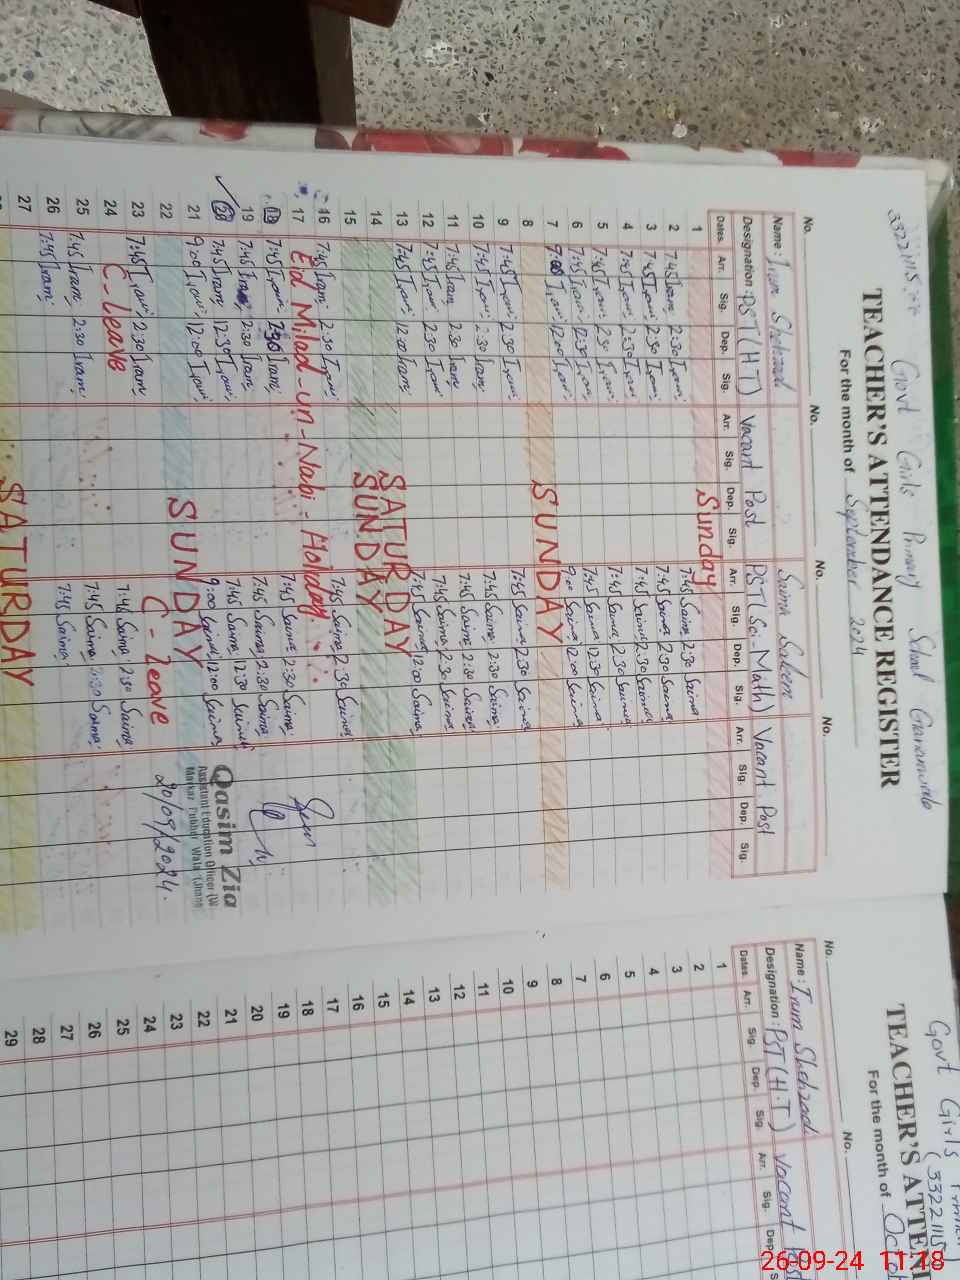 Govt Girls Primary School
TEACHER'S ATTENDANCE REGISTER
For the month of September 2024
No. No. No. No.
Name: Irum Shehzad Saima Saleem
Designation: PST (H.T) Vacant Post PST (Sci-Math) Vacant Post
Dates. Arr. Sig. Dep. Sig. Arr. Sig. Dep. Sig. Arr. Sig. Dep. Sig. Arr. Sig. Dep. Sig.
1 Sunday
2 7:45 Iram 2:30 Iram 7:45 Saima 2:30 Saima
3 7:45 Iram 2:30 Iram 7:45 Saima 2:30 Saima
4 7:45 Iram 2:30 Iram 7:45 Saima 2:30 Saima
5 7:45 Iram 2:30 Iram 7:45 Saima 2:30 Saima
6 7:45 Iram 12:30 Iram 7:45 Saima 12:30 Saima
7 9:00 Iram 12:00 Iram 9:00 Saima 12:00 Saima
8 SUNDAY
9 7:45 Iram 2:30 Iram 7:45 Saima 2:30 Saima
10 7:45 Iram 2:30 Iram 7:45 Saima 2:30 Saima
11 7:45 Iram 2:30 Iram 7:45 Saima 2:30 Saima
12 7:45 Iram 2:30 Iram 7:45 Saima 2:30 Saima
13 7:45 Iram 12:00 Iram 7:45 Saima 12:00 Saima
14 SATURDAY
15 SUNDAY
16 7:45 Iram 2:30 Iram 7:45 Saima 2:30 Saima
17 Eid Milad-un-Nabi-Holiday
18 7:45 Iram 2:30 Iram 7:45 Saima 2:30 Saima
19 7:45 Iram 2:30 Iram 7:45 Saima 2:30 Saima
20 7:45 Iram 12:30 Iram 7:45 Saima 12:30 Saima
21 9:00 Iram 12:00 Iram 9:00 Saima 12:00 Saima
22 SUNDAY
23 7:45 Iram 2:30 Iram C-Leave
24 C-Leave 7:45 Saima 2:30 Saima
25 7:45 Iram 2:30 Iram 7:45 Saima 2:30 Saima
26 7:45 Iram 7:45 Saima
27
SATURDAY
Qasim Zia
Assistant Education Officer (W
Markaz Pubber Wala (Jhang
20/09/2024.
Govt Girls
TEACHER'S ATTEN
For the month of Octo
No. No.
Name: Irum Shehzad
Designation: PST (H.T) Vacant Post
Dates. Arr. Sig. Dep. Sig. Arr. Sig. Dep. S
1
2
3
4
5
6
7
8
9
10
11
12
13
14
15
16
17
18
19
20
21
22
23
24
25
26
27
28
29
26-09-24 11:18